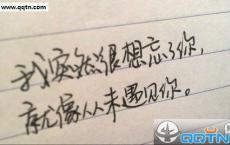 www.qqtn.com
我突然很想忘了你,
就像从未遇见你。
QQTN